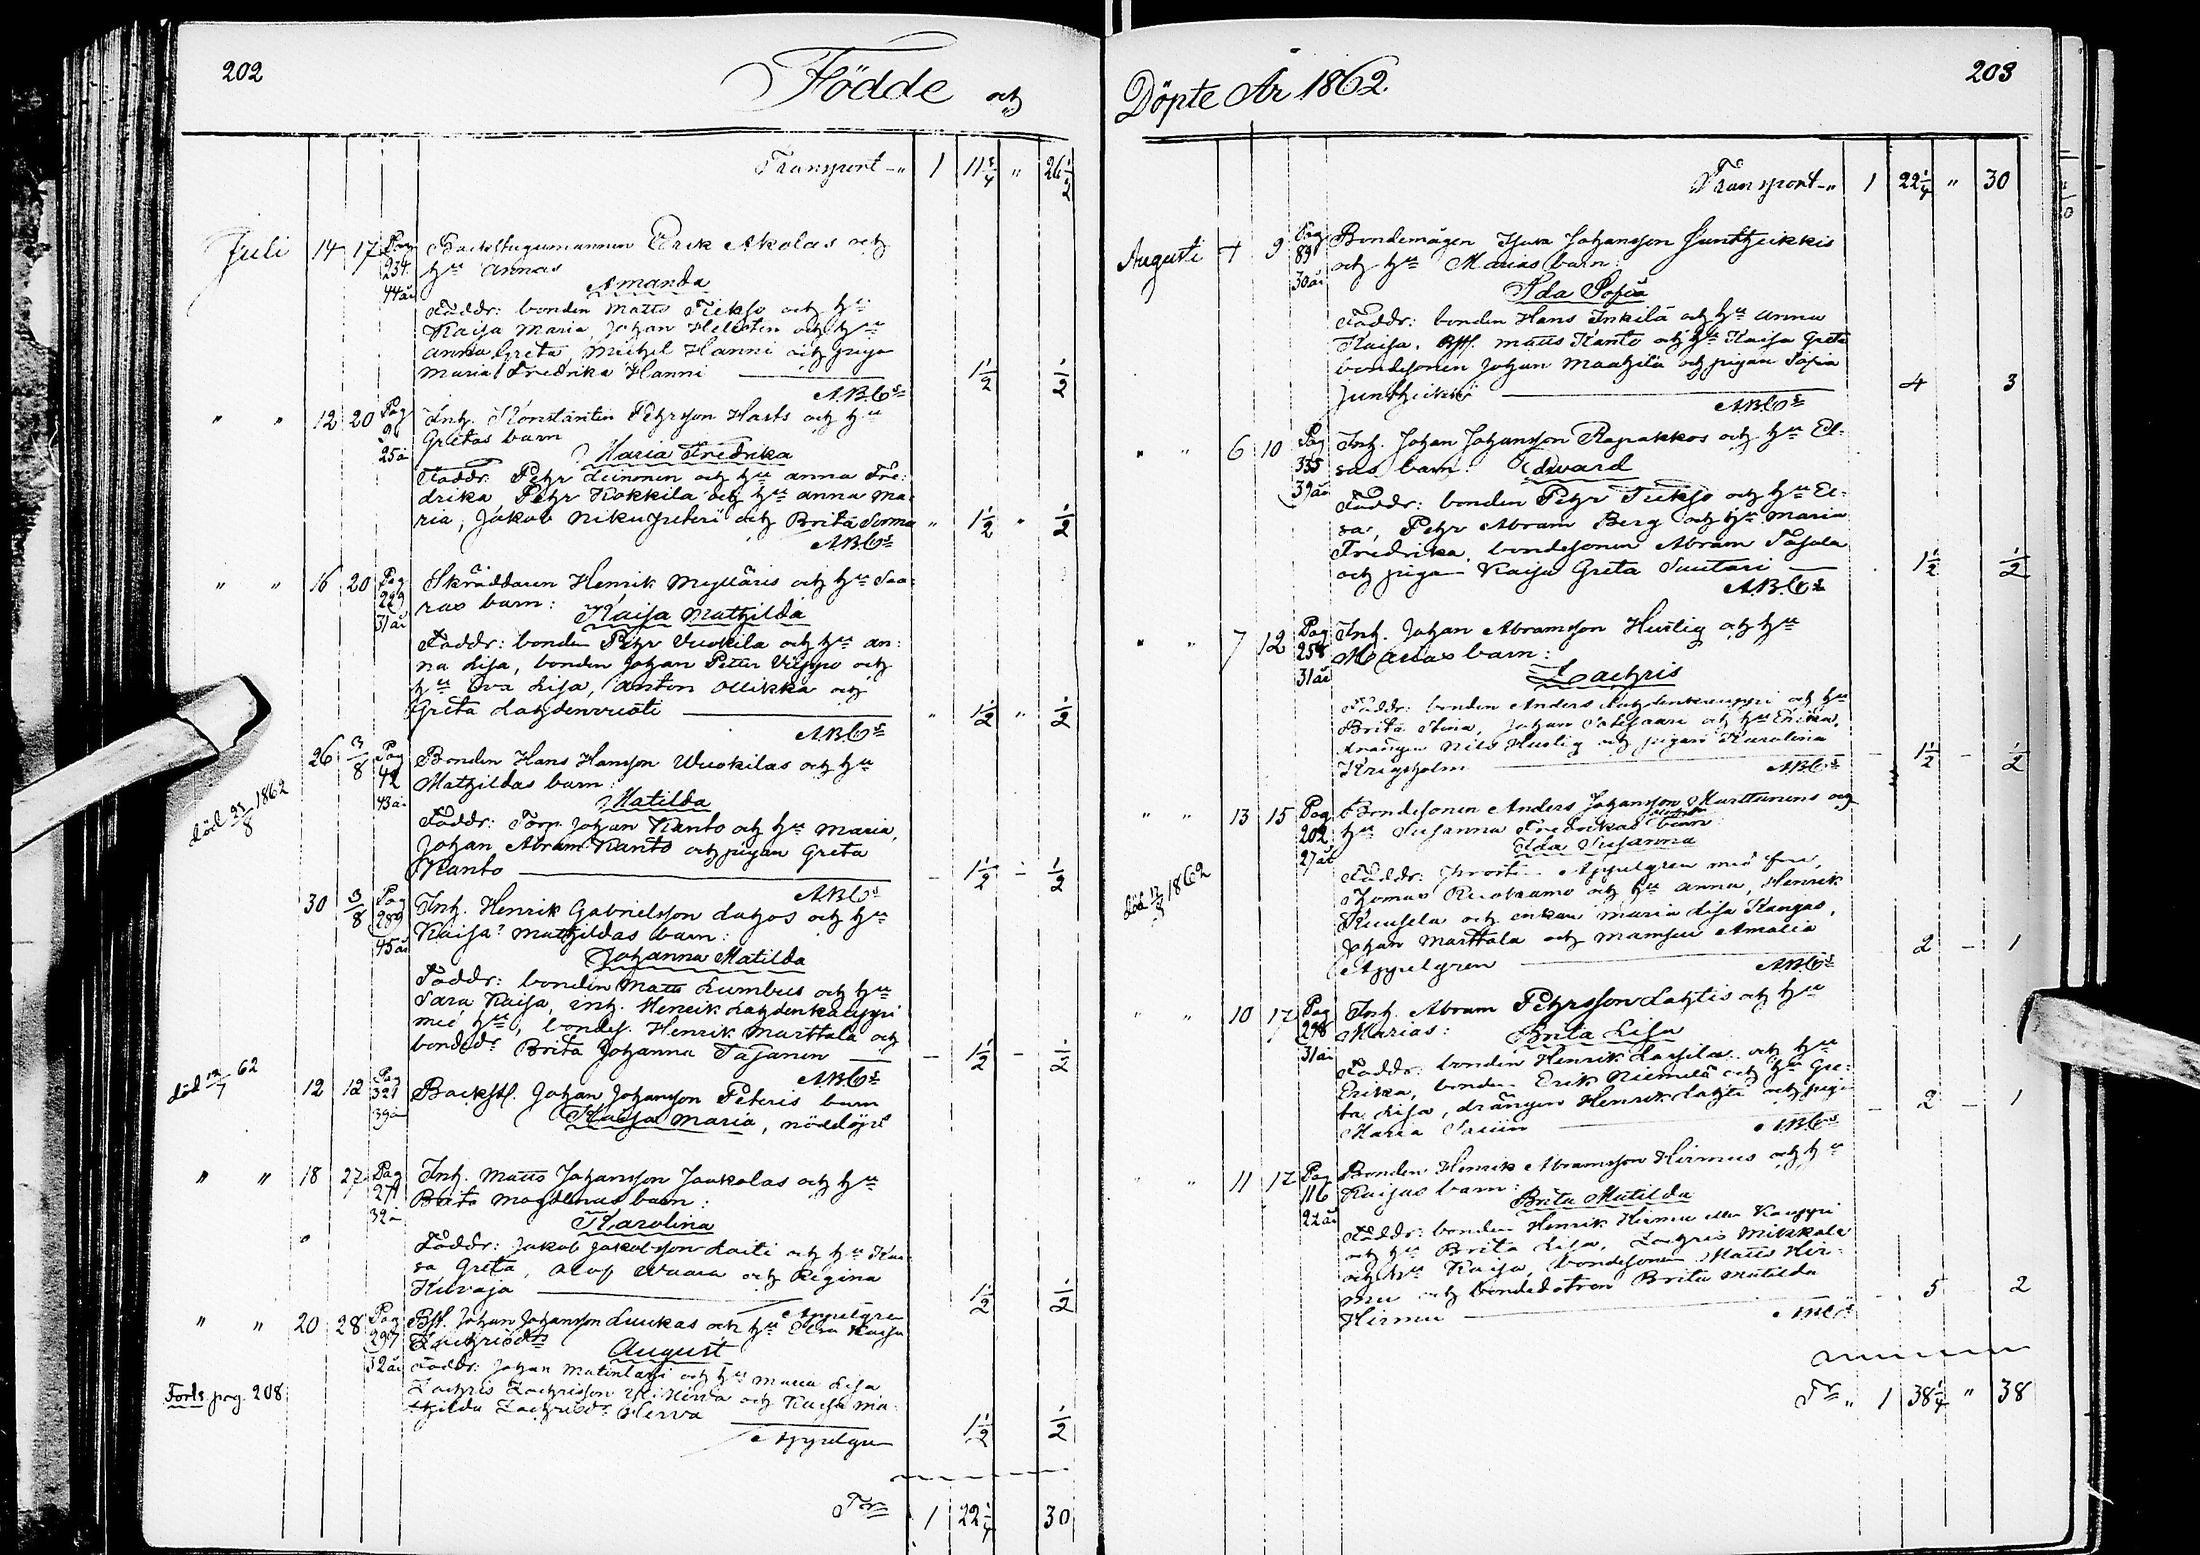 202
Födde och
Transport - " 1 11 3/4 " 26 1/2
Juli 14 17 Pag 234 44 år Backstugumannen Erik Akolas och
hu Annas
Amanda
Faddr: bonden Matts Tiekso och hu
Kaisa Maria, Johan Hellsten och hu
Anna Greta, Michel Hanni och piga
Maria Fredrika Hanni 1 1/2 1/2
" " 12 20 Pag 25 å Inh. Konstantin Pehrsson Harls och hu
Gretas barn
Maria Fredrika
Faddr: Pehr Leinonen och hu Anna Fre-
drika, Pehr Kokkila och hu Anna Ma-
ria, Jakob och Brita Sorma " 1 1/2 " 1/2
" " 16 20 Pag 229 31 år Skräddaren Henrik Mylläris och hu Saa-
ras barn:
Kaisa Mathilda
Faddr: bonden Pehr Vuokila och hu An-
na Lisa, bonden Johan Petter Vippo och
hu Eva Lisa, Anton Ollikka och
Greta " 1 1/2 " 1/2
26 3/8 Pag 42 43 år Bonden Hans Hansson Wuokilas och hu
Mathildas barn:
Matilda
död 23/8 1862
Faddr: Torp. Johan Kanto och hu Maria,
Johan Abram Kanto och pigan Greta
Kanto - 1 1/2 - 1/2
30 3/8 Pag 289 45 år Inh. Henrik Gabrielsson Lahos och hu
Kaisa? Mathildas barn:
Johanna Matilda
Faddr: bonden Matts Lumbus och hu
Sara Kaisa, inh. Henrik Lahdenkauppi
med hu, bondes. Henrik Marttala och
bondedr Brita Johanna Tajanen - 1 1/2 - 1/2
död 12/7 62 12 12 Pag 321 39 år Backstl. Johan Johansson Peteris barn
Kaisa Maria, nöddöpt
" " 18 27 Pag 271 32 å Inh. Matts Johansson Jaakolas och hu
Brita Magdlenas barn:
Karolina
Faddr: Jakob Jakobsson Laiti och hu Kai-
sa Greta, Olof Waara och Regina
Kuvaja 1 1/2 1/2
Appelgren
" " 20 28 Pag 297 32 år Bst. Johan Johansson Luukas och hu Kaisa
Zachrisdr
August
Faddr: Johan Matinlassi och hu Maria Lisa
Forts pag. 208
Zachris Zachrisson Hirva och Kaisa Ma-
thilda Zachrisdr Hirva 1 1/2 1/2
Appelgren
Tr 1 22 1/4 30
203
Döpte År 1862
Transport - " 1 22 1/4 " 30
Augusti 4 9 Pag 89 30 år Bondemågen Johansson Junttheikkis
och hu Marias barn:
Ida Sofia
Faddr: bonden Hans Inkilä och hu Anna
Kaisa, Bstl. Matts Kanto och hu Kaisa Greta
bondesonen Johan Maahilä och pigan Sofia
Junttheikki 4 3
" " 6 10 Pag 335 39 år Inh. Johan Johansson Rapakkos och hu El-
sas barn: Edvard
Faddr: bonden Pehr Tiekso och hu El-
sa, Pehr Abram Berg och hu Maria
Fredrika, bondesonen Abram
och piga Kaisa Greta Suutari 1 1/2 1/2
" " 7 12 Pag 258 31 år Inh. Johan Abramsson Hurlig och hu
Marias barn:
Zachris
Faddr: bonden Anders Lahdenkauppi och hu
Brita Stina, Johan och hu Erika,
drängen Nils Hurlig och pigan Karolina
Krigsholm - 1 1/2 - 1/2
" " 13 15 Pag 202 27 år Bondesonen Anders Johansson Marttinens och
hu Susanna Fredrikas barn
Elda Susanna
död 17/8 1862
Faddr: Appelgren med fru,
Thomas och hu Anna, Henrik
Kuusela och enkan Maria Lisa Kangas,
Johan Marttala och Mamsell Amalia
Appelgren 2 - 1
" " 10 17 Pag 298 31 år Inh. Abram Pehrsson Lahtis och hu
Marias: Brita Lisa
Faddr: bonden Henrik och hu
Erika, bonden Erik Niemelä och hu Gre-
ta Lisa, drängen Henrik Lahti och piga
Maria - 2 - 1
" " 11 17 Pag 116 22 år Bonden Henrik Abramsson Hirmus och hu
Kaisas barn:
Brita Matilda
Faddr: bonden Henrik Hirmu eller Kauppi
och hu Brita Lisa, Zachris Mikkola
och hu Kaisa, bondesonen Matts Hir-
mu och bondedottren Brita Matilda
Hirmu 5 2
Tr " 1 38 1/4 " 38